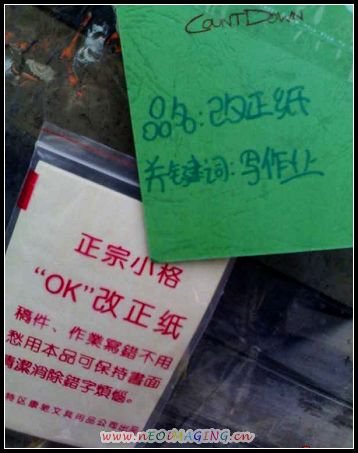 COUNTDOWN
品名:改正纸
关键词:写作业
正宗小格
“OK”改正纸
稿件、作業寫錯不用
愁用本品可保持書面
清潔消除錯字煩惱。
特区康弟文具用品公司出品
www.nEOiMAGING.cn